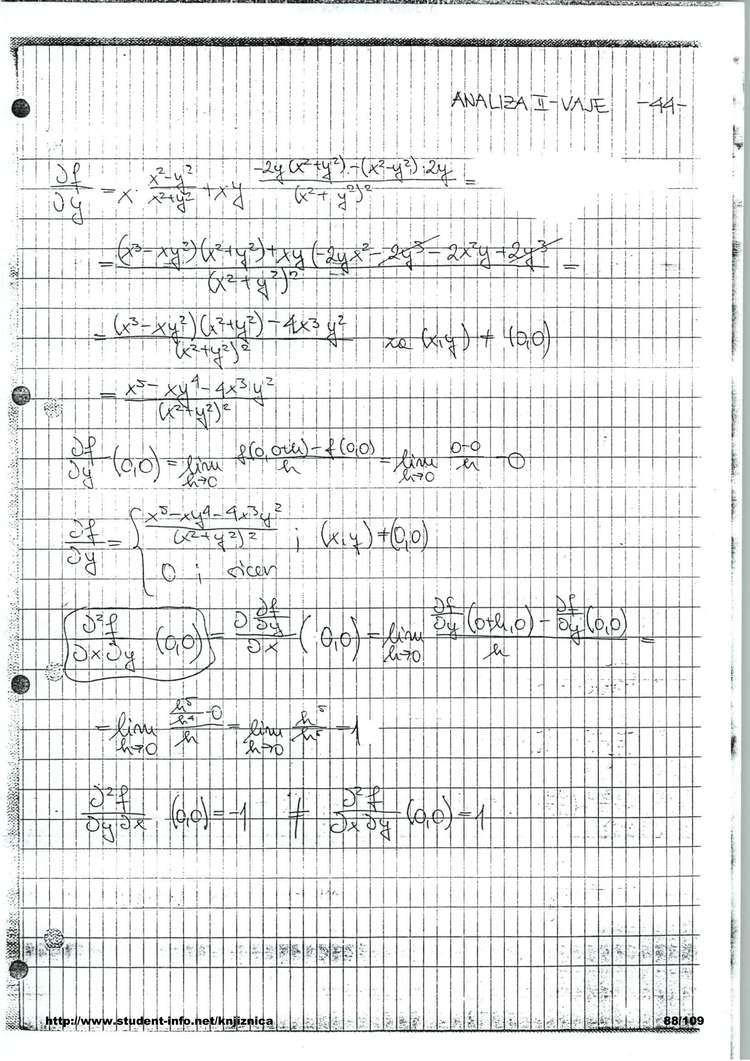 ANALIZA II - VAJE -44-
∂f/∂y = x · (x²-y²)/(x²+y²) + xy (-2y(x²+y²) - (x²-y²)·2y)/(x²+y²)² =
= ((x³-xy²)(x²+y²) + xy(-2yx² - 2y³ - 2x²y + 2y³))/(x²+y²)² =
= ((x³-xy²)(x²+y²) - 4x³y²)/(x²+y²)² za (x,y) ≠ (0,0)
= (x⁵ - xy⁴ - 4x³y²)/(x²+y²)²
∂f/∂y (0,0) = lim h→0 (f(0,0+h) - f(0,0))/h = lim h→0 (0-0)/h = 0
∂f/∂y = { (x⁵ - xy⁴ - 4x³y²)/(x²+y²)² ; (x,y) ≠ (0,0)
0 ; sicer
∂²f/∂x∂y (0,0) = ∂ ∂f/∂y / ∂x (0,0) = lim h→0 (∂f/∂y (0+h,0) - ∂f/∂y (0,0))/h =
= lim h→0 (h⁵/h⁴ - 0)/h = lim h→0 h⁵/h⁵ = 1
∂²f/∂y∂x (0,0) = -1 ≠ ∂²f/∂x∂y (0,0) = 1
http://www.student-info.net/knjiznica 88/109